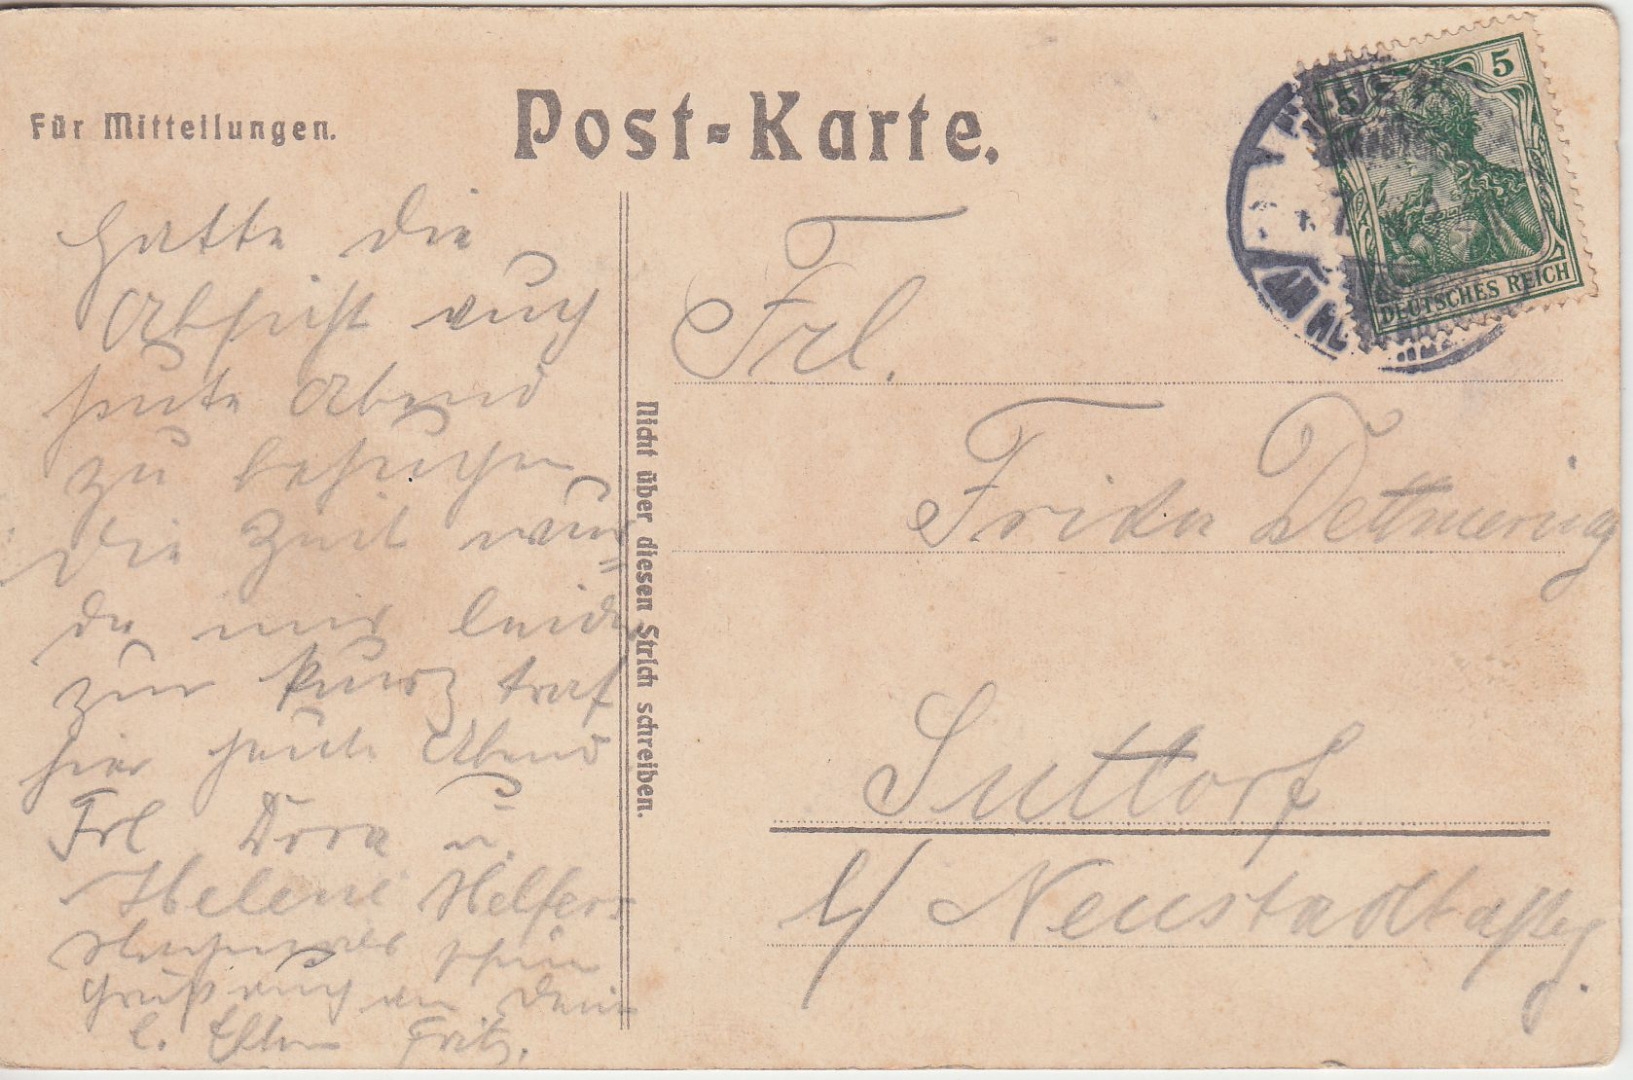 Für Mitteilungen.
Post-Karte.
5 5
DEUTSCHES REICH
Hatte die
Absicht euch
heute Abend
zu besuchen
die Zeit wur=
de mir leider
zur kurz traf
hier heute Abend
Frl Dora u.
Helene Helfers
schöne
Grüße auch an Deine
l. Eltern Fritz.
Nicht über diesen Strich schreiben.
Frl.
Frida Dettmering
Suttorf
b/ Neustadt a/Rbg.